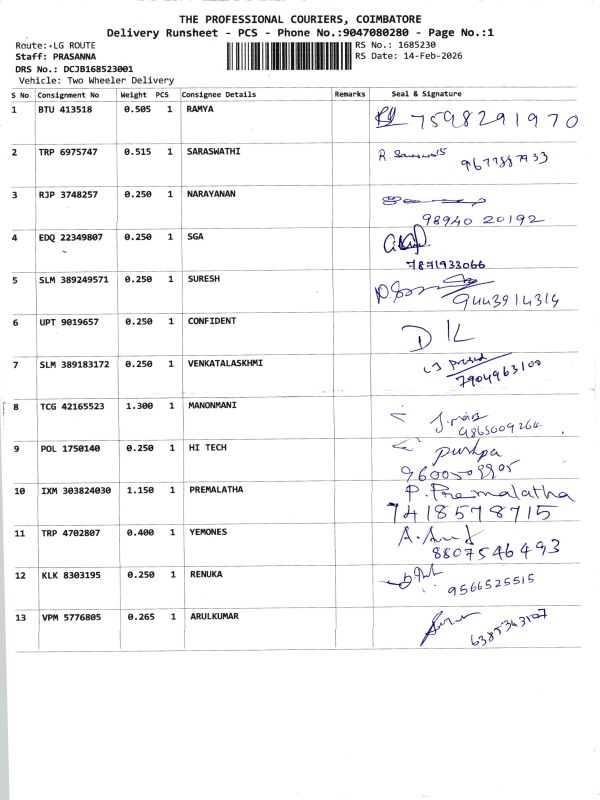 THE PROFESSIONAL COURIERS, COIMBATORE
Delivery Runsheet - PCS - Phone No.:9047080280 - Page No.:1
Route: LG ROUTE RS No.: 1685230
Staff: PRASANNA RS Date: 14-Feb-2026
DRS No.: DCJB168523001
Vehicle: Two Wheeler Delivery
S No Consignment No Weight PCS Consignee Details Remarks Seal & Signature
1 BTU 413518 0.505 1 RAMYA 7598291970
2 TRP 6975747 0.515 1 SARASWATHI R. Saraswathi 9677887933
3 RJP 3748257 0.250 1 NARAYANAN
98940 20192
4 EDQ 22349807 0.250 1 SGA
7871933066
5 SLM 389249571 0.250 1 SURESH
9443914314
6 UPT 9019657 0.250 1 CONFIDENT
7 SLM 389183172 0.250 1 VENKATALASKHMI
7904963100
8 TCG 42165523 1.300 1 MANONMANI
9865009264
9 POL 1750140 0.250 1 HI TECH pushpa
10 IXM 303824030 1.150 1 PREMALATHA P. Premalatha
7418578715
11 TRP 4702807 0.400 1 YEMONES
8807546493
12 KLK 8303195 0.250 1 RENUKA
9566525515
13 VPM 5776805 0.265 1 ARULKUMAR
6385343107